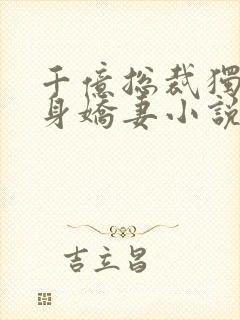 千億総裁獨
身嬌妻小說
吉立昌